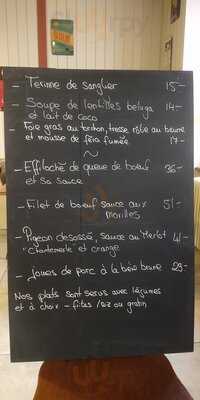 - Terrine de sanglier 15.-
- Soupe de lentilles beluga 14.-
et lait de coco
- Foie gras au torchon, tresse rôtie au beurre
et mousse de féra fumée 17.-
~
- Effiloché de queue de boeuf 36.-
et sa sauce
- Filet de boeuf sauce aux 51.-
morilles
- Pigeon désossé, sauce au Merlot 41.-
"Chanterelle" et orange
- Joues de porc à la bière brune 29.-
Nos plats sont servis avec légumes
et à choix - frites / riz ou gratin